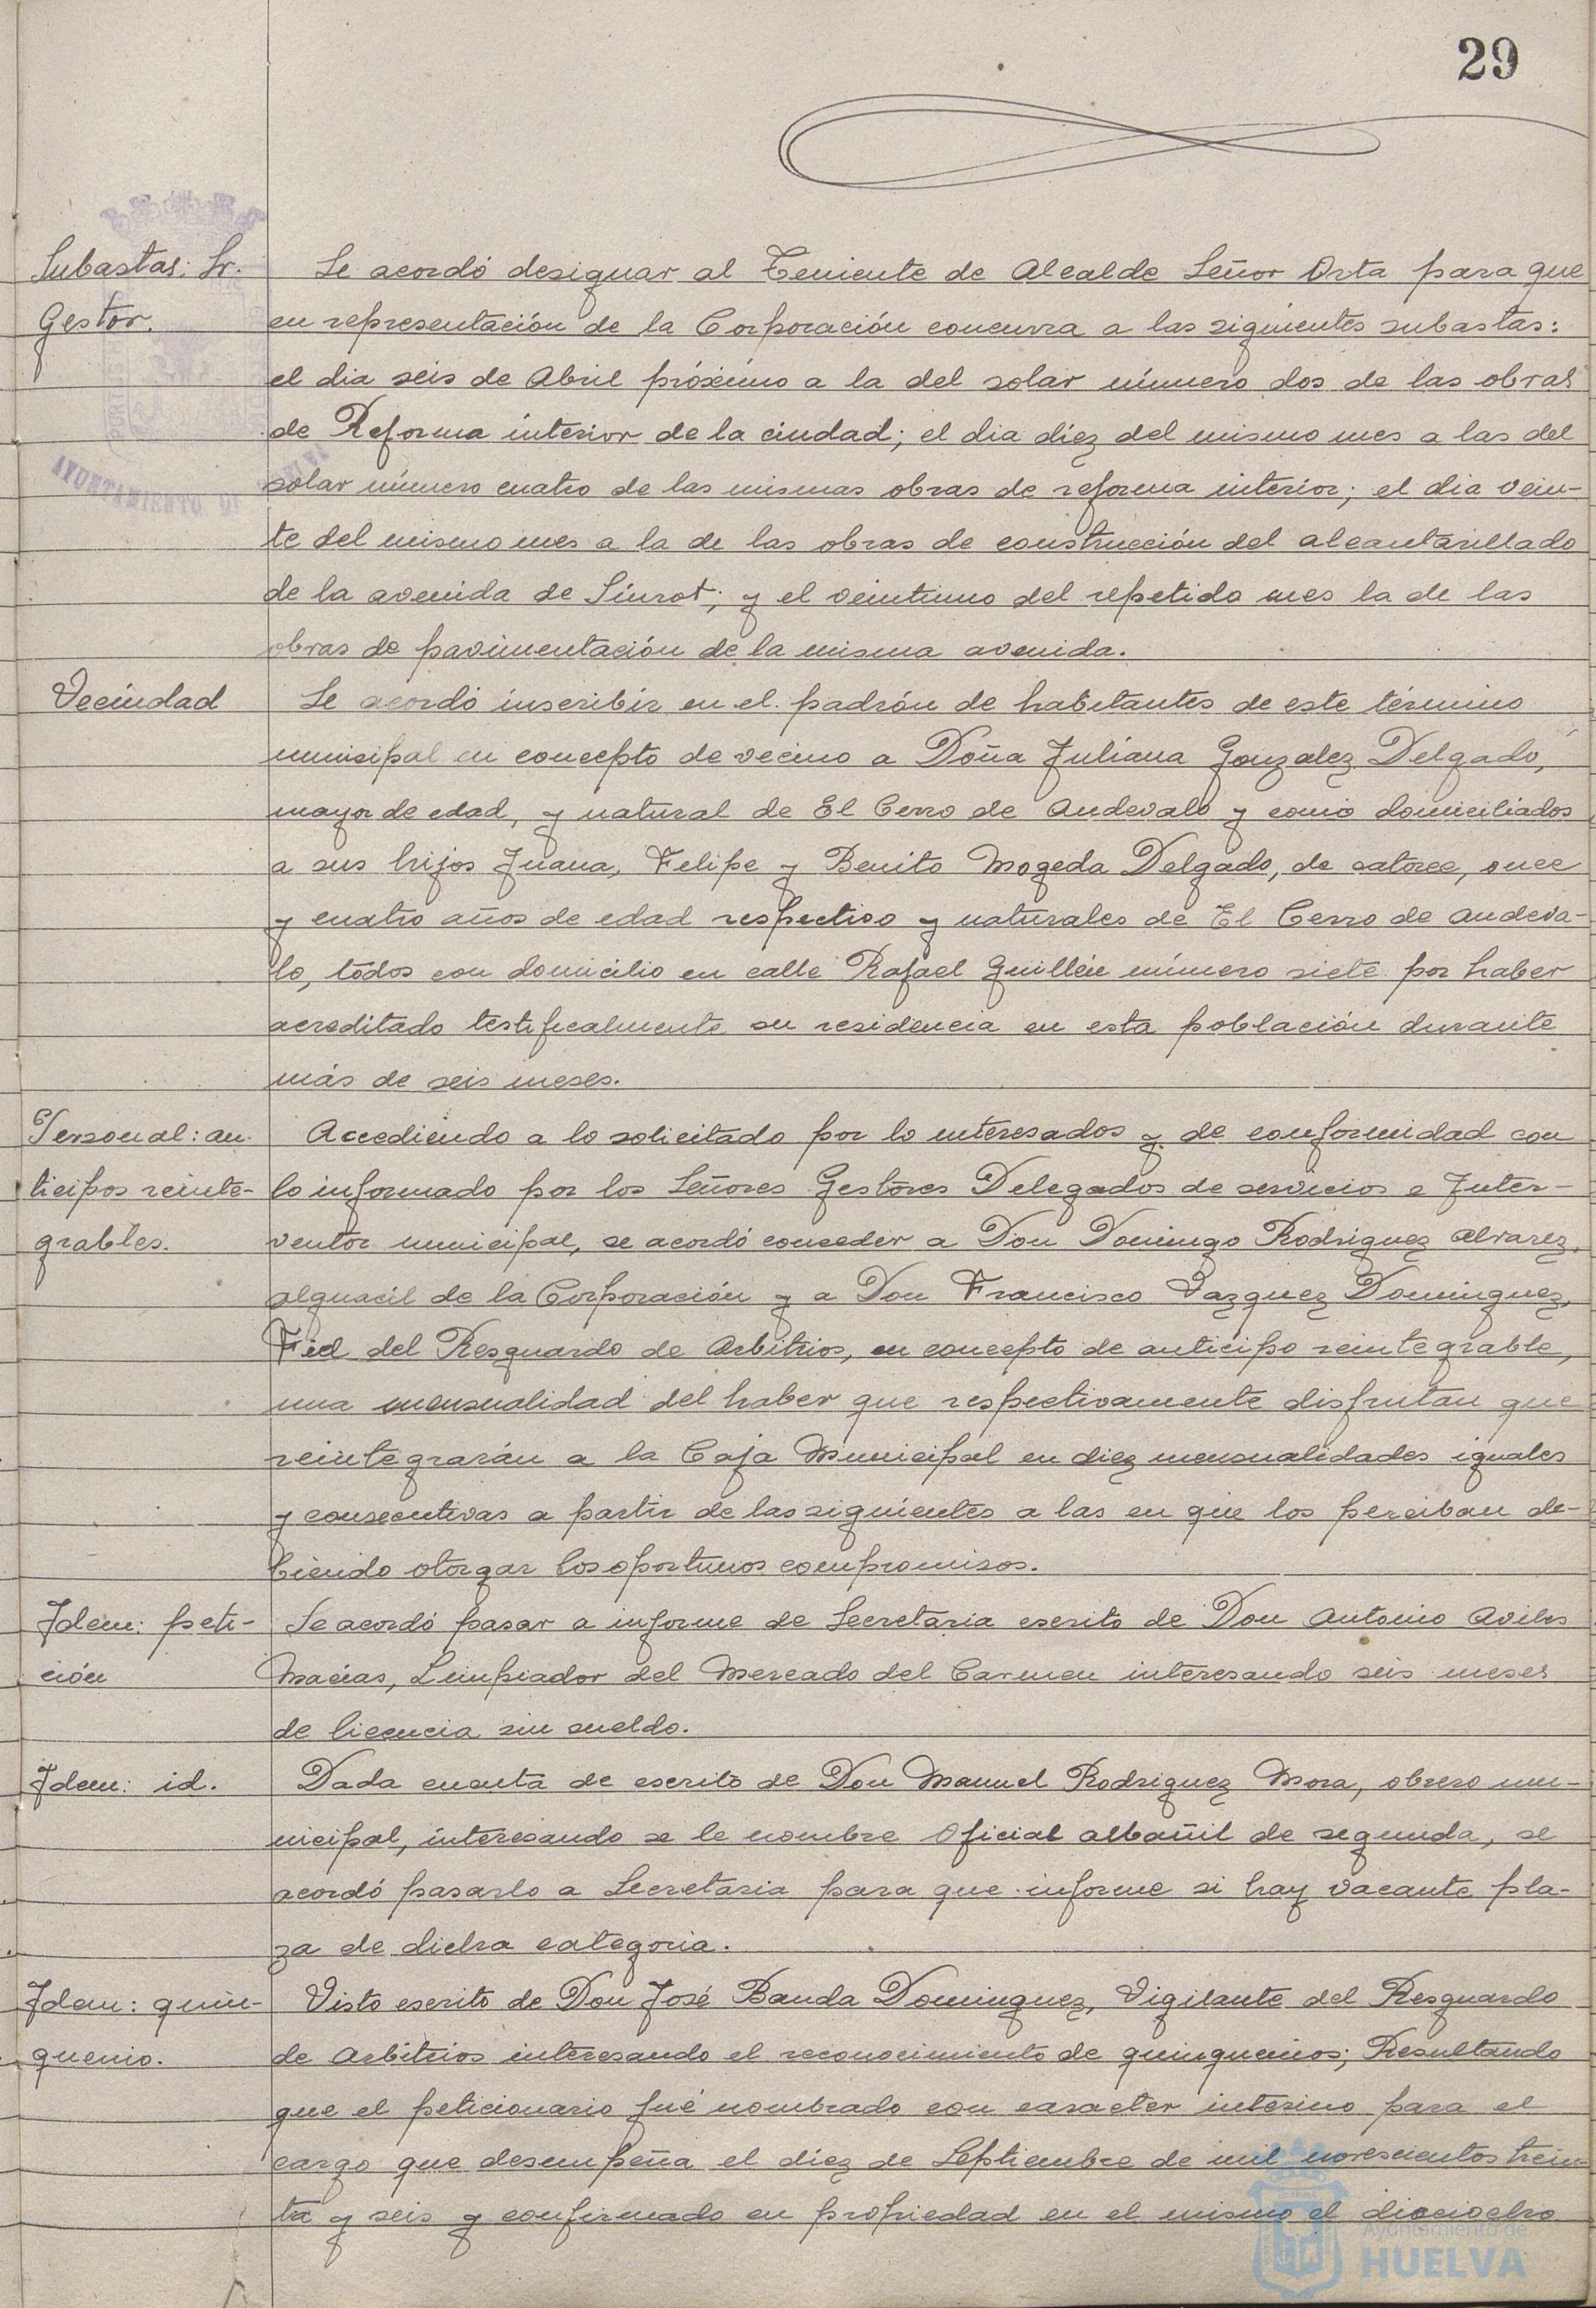 29
Subastas: Sr.
Gestor.
Se acordó designar al Teniente de Alcalde Señor Orta para que
en representación de la Corporación concurra a las siguientes subastas:
el dia seis de Abril próximo a la del solar número dos de las obras
de Reforma interior de la ciudad; el dia diez del mismo mes a las del
solar número cuatro de las mismas obras de reforma interior; el dia vein-
te del mismo mes a la de las obras de construcción del alcantarillado
de la avenida de Siurot; y el veintiuno del repetido mes la de las
obras de pavimentación de la misma avenida.
Vecindad
Se acordó inscribir en el padrón de habitantes de este término
municipal en concepto de vecino a Doña Juliana Gonzalez Delgado,
mayor de edad, y natural de El Cerro de Andevalo y como domiciliados
a sus hijos Juana, Felipe y Benito Mogeda Delgado, de catorce, once
y cuatro años de edad respectivo y naturales de El Cerro de Andeva-
lo, todos con domicilio en calle Rafael Guillén número siete por haber
acreditado testificalmente su residencia en esta población durante
más de seis meses.
Personal: an-
ticipos reinte-
grables.
Accediendo a lo solicitado por lo interesados y de conformidad con
lo informado por los Señores Gestores Delegados de servicios e Inter-
ventor municipal, se acordó conceder a Don Domingo Rodriguez Alvarez,
alguacil de la Corporación y a Don Francisco Vazquez Dominguez,
Fiel del Resguardo de Arbitrios, en concepto de anticipo reintegrable,
una mensualidad del haber que respectivamente disfrutan que
reintegrarán a la Caja Municipal en diez mensualidades iguales
y consecutivas a partir de las siguientes a las en que los perciban de-
biendo otorgar los oportunos compromisos.
Idem: peti-
ción
Se acordó pasar a informe de Secretaria escrito de Don Antonio Aviles
Macias, Limpiador del Mercado del Carmen interesando seis meses
de licencia sin sueldo.
Idem: id.
Dada cuenta de escrito de Don Manuel Rodriguez Mora, obrero mu-
nicipal, interesando se le nombre Oficial albañil de segunda, se
acordó pasarlo a Secretaria para que informe si hay vacante pla-
za de dicha categoria.
Idem: quin-
quenio.
Visto escrito de Don José Banda Dominguez, Vigilante del Resguardo
de Arbitrios interesando el reconocimiento de quinquenios; Resultando
que el peticionario fué nombrado con caracter interino para el
cargo que desempeña el diez de Septiembre de mil novescientos trein-
ta y seis y confirmado en propiedad en el mismo el dieciocho
AYUNTAMIENTO DE
Ayuntamiento de
HUELVA